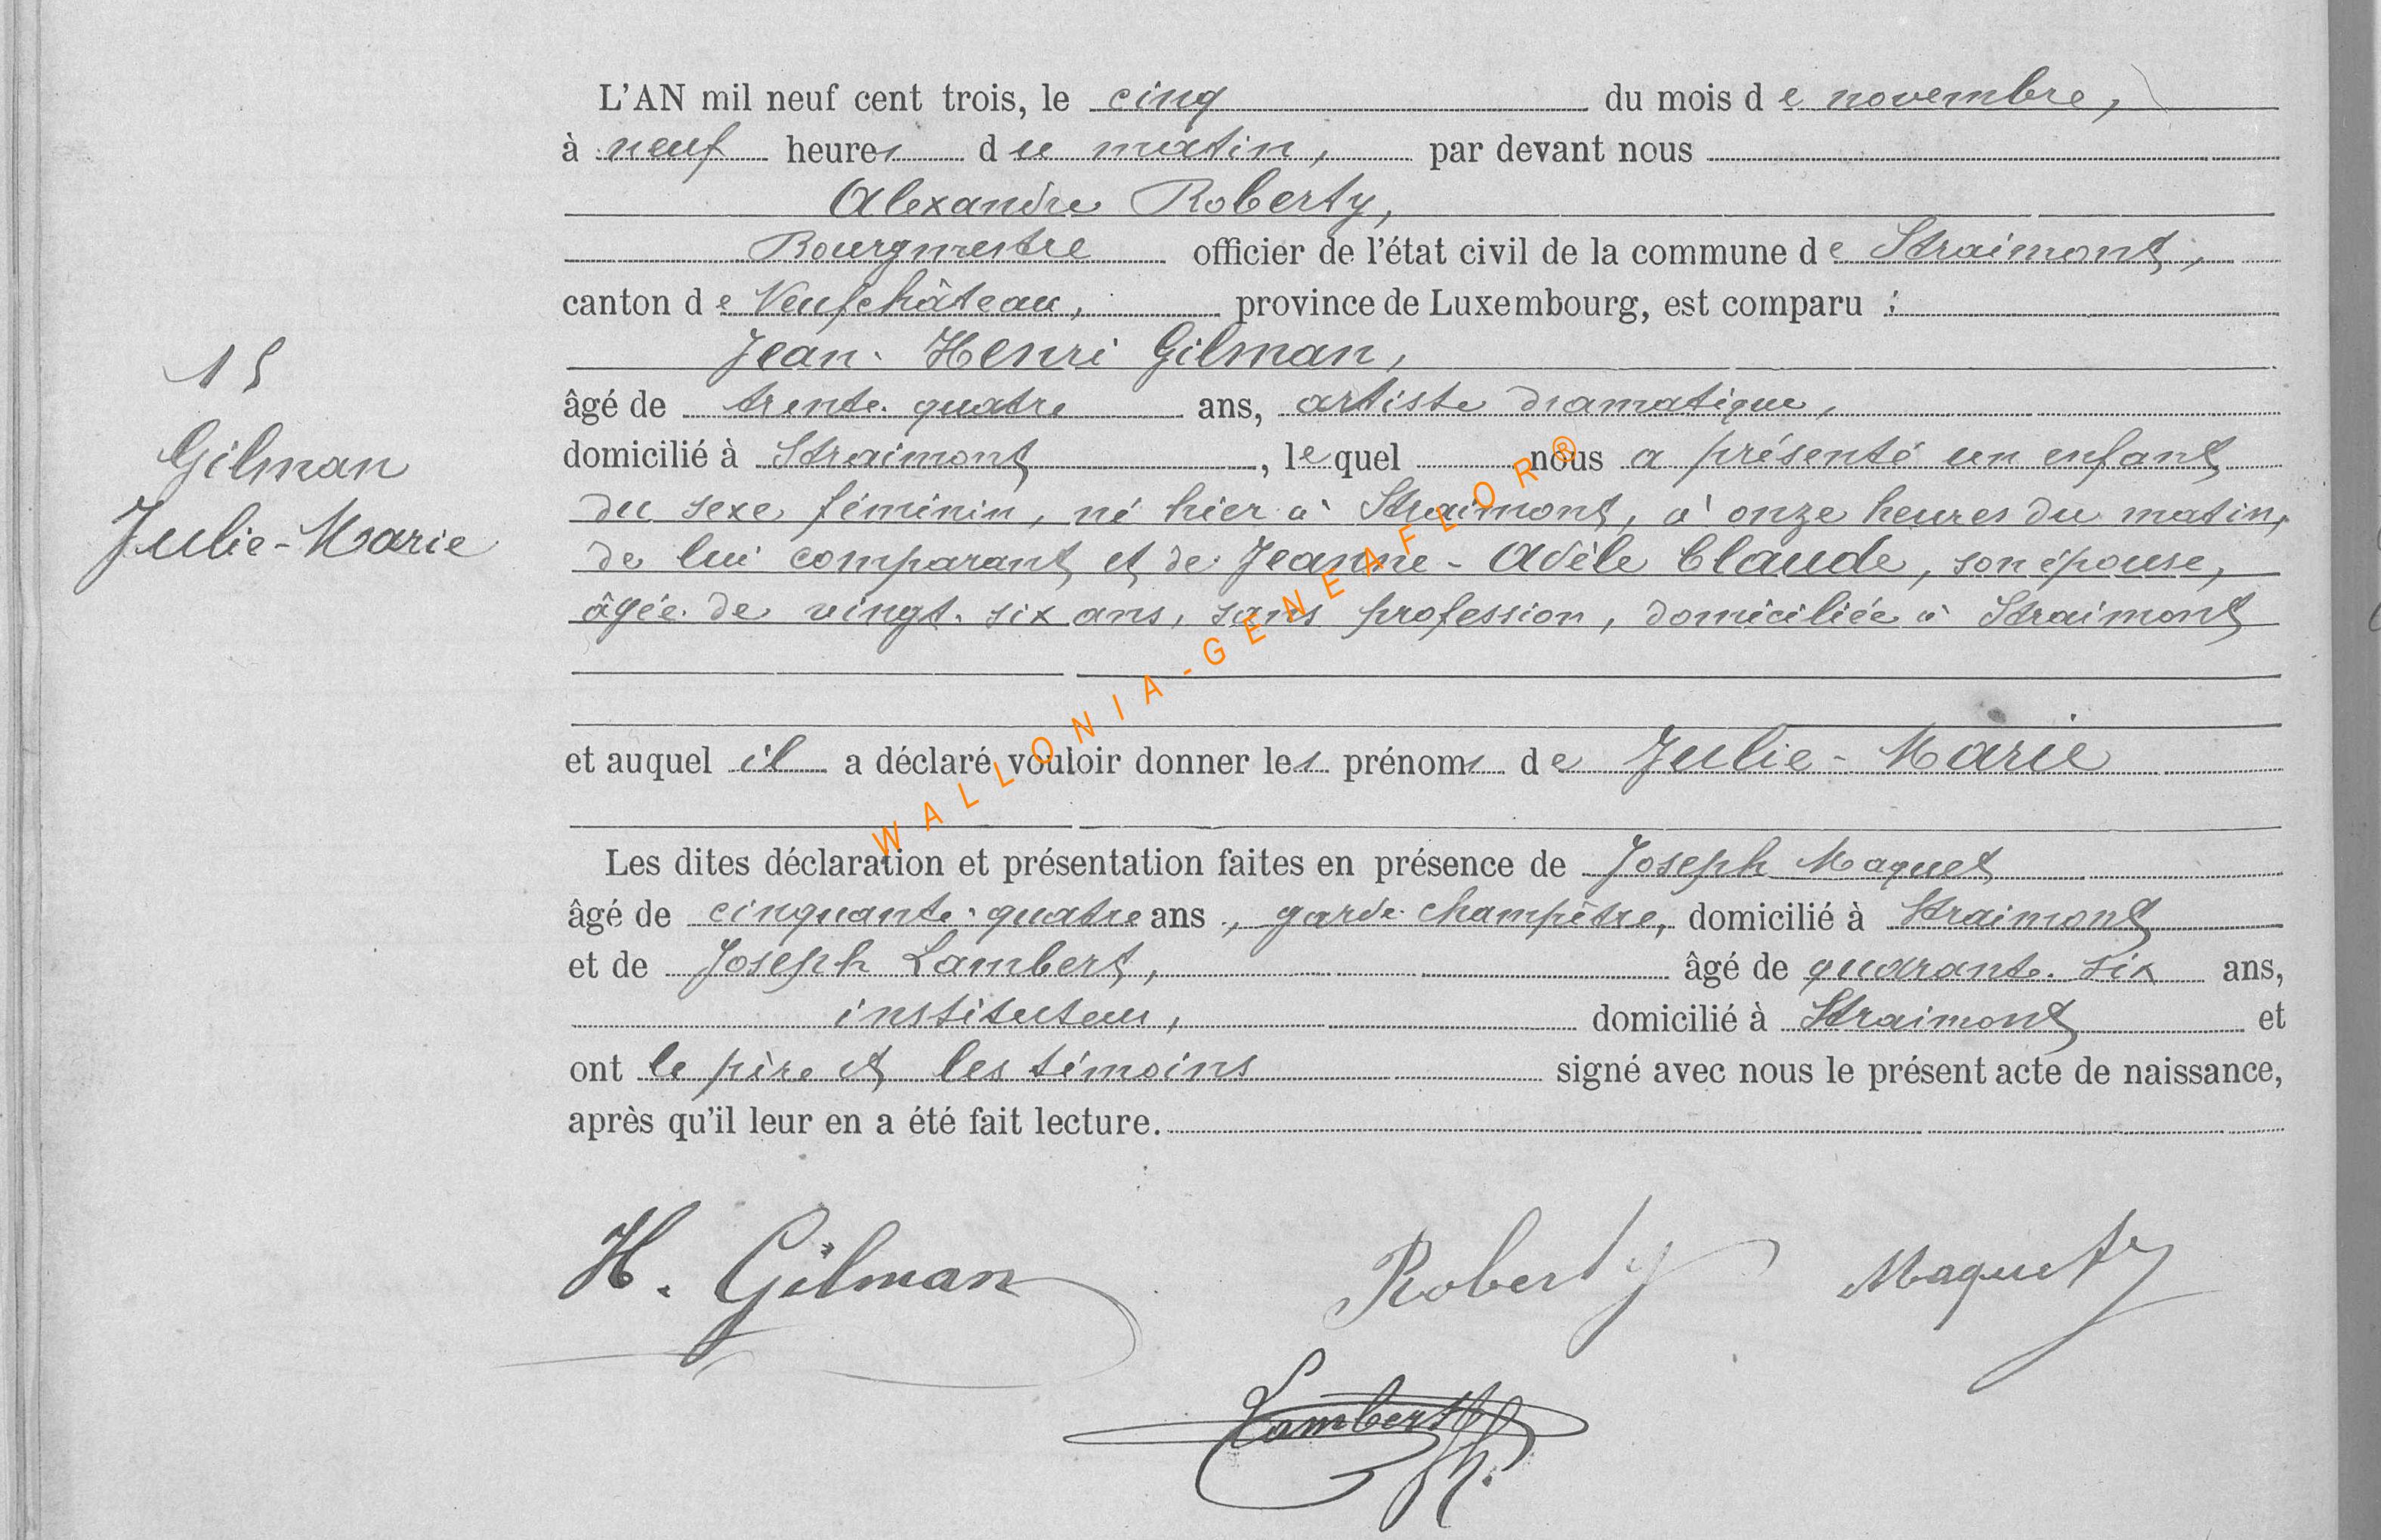 L'AN mil neuf cent trois, le cinq du mois de novembre,
à neuf heures du matin, par devant nous
Alexandre Roberty,
Bourgmestre officier de l'état civil de la commune de Straimont,
canton de Neufchâteau, province de Luxembourg, est comparu :
Jean-Henri Gilman,
âgé de trente-quatre ans, artiste dramatique,
domicilié à Straimont, lequel nous a présenté un enfant
du sexe féminin, né hier à Straimont, à onze heures du matin,
de lui comparant et de Jeanne-Adèle Claude, son épouse,
âgée de vingt-six ans, sans profession, domiciliée à Straimont
et auquel il a déclaré vouloir donner les prénoms de Julie-Marie
Les dites déclaration et présentation faites en présence de Joseph Maquet
âgé de cinquante-quatre ans, garde champêtre, domicilié à Straimont
et de Joseph Lambert, âgé de quarante-six ans,
instituteur, domicilié à Straimont et
ont le père et les témoins signé avec nous le présent acte de naissance,
après qu'il leur en a été fait lecture.
15
Gilman
Julie-Marie
H. Gilman Roberty Maquet
Lambert
WALLONIA-GENEAFLOR®